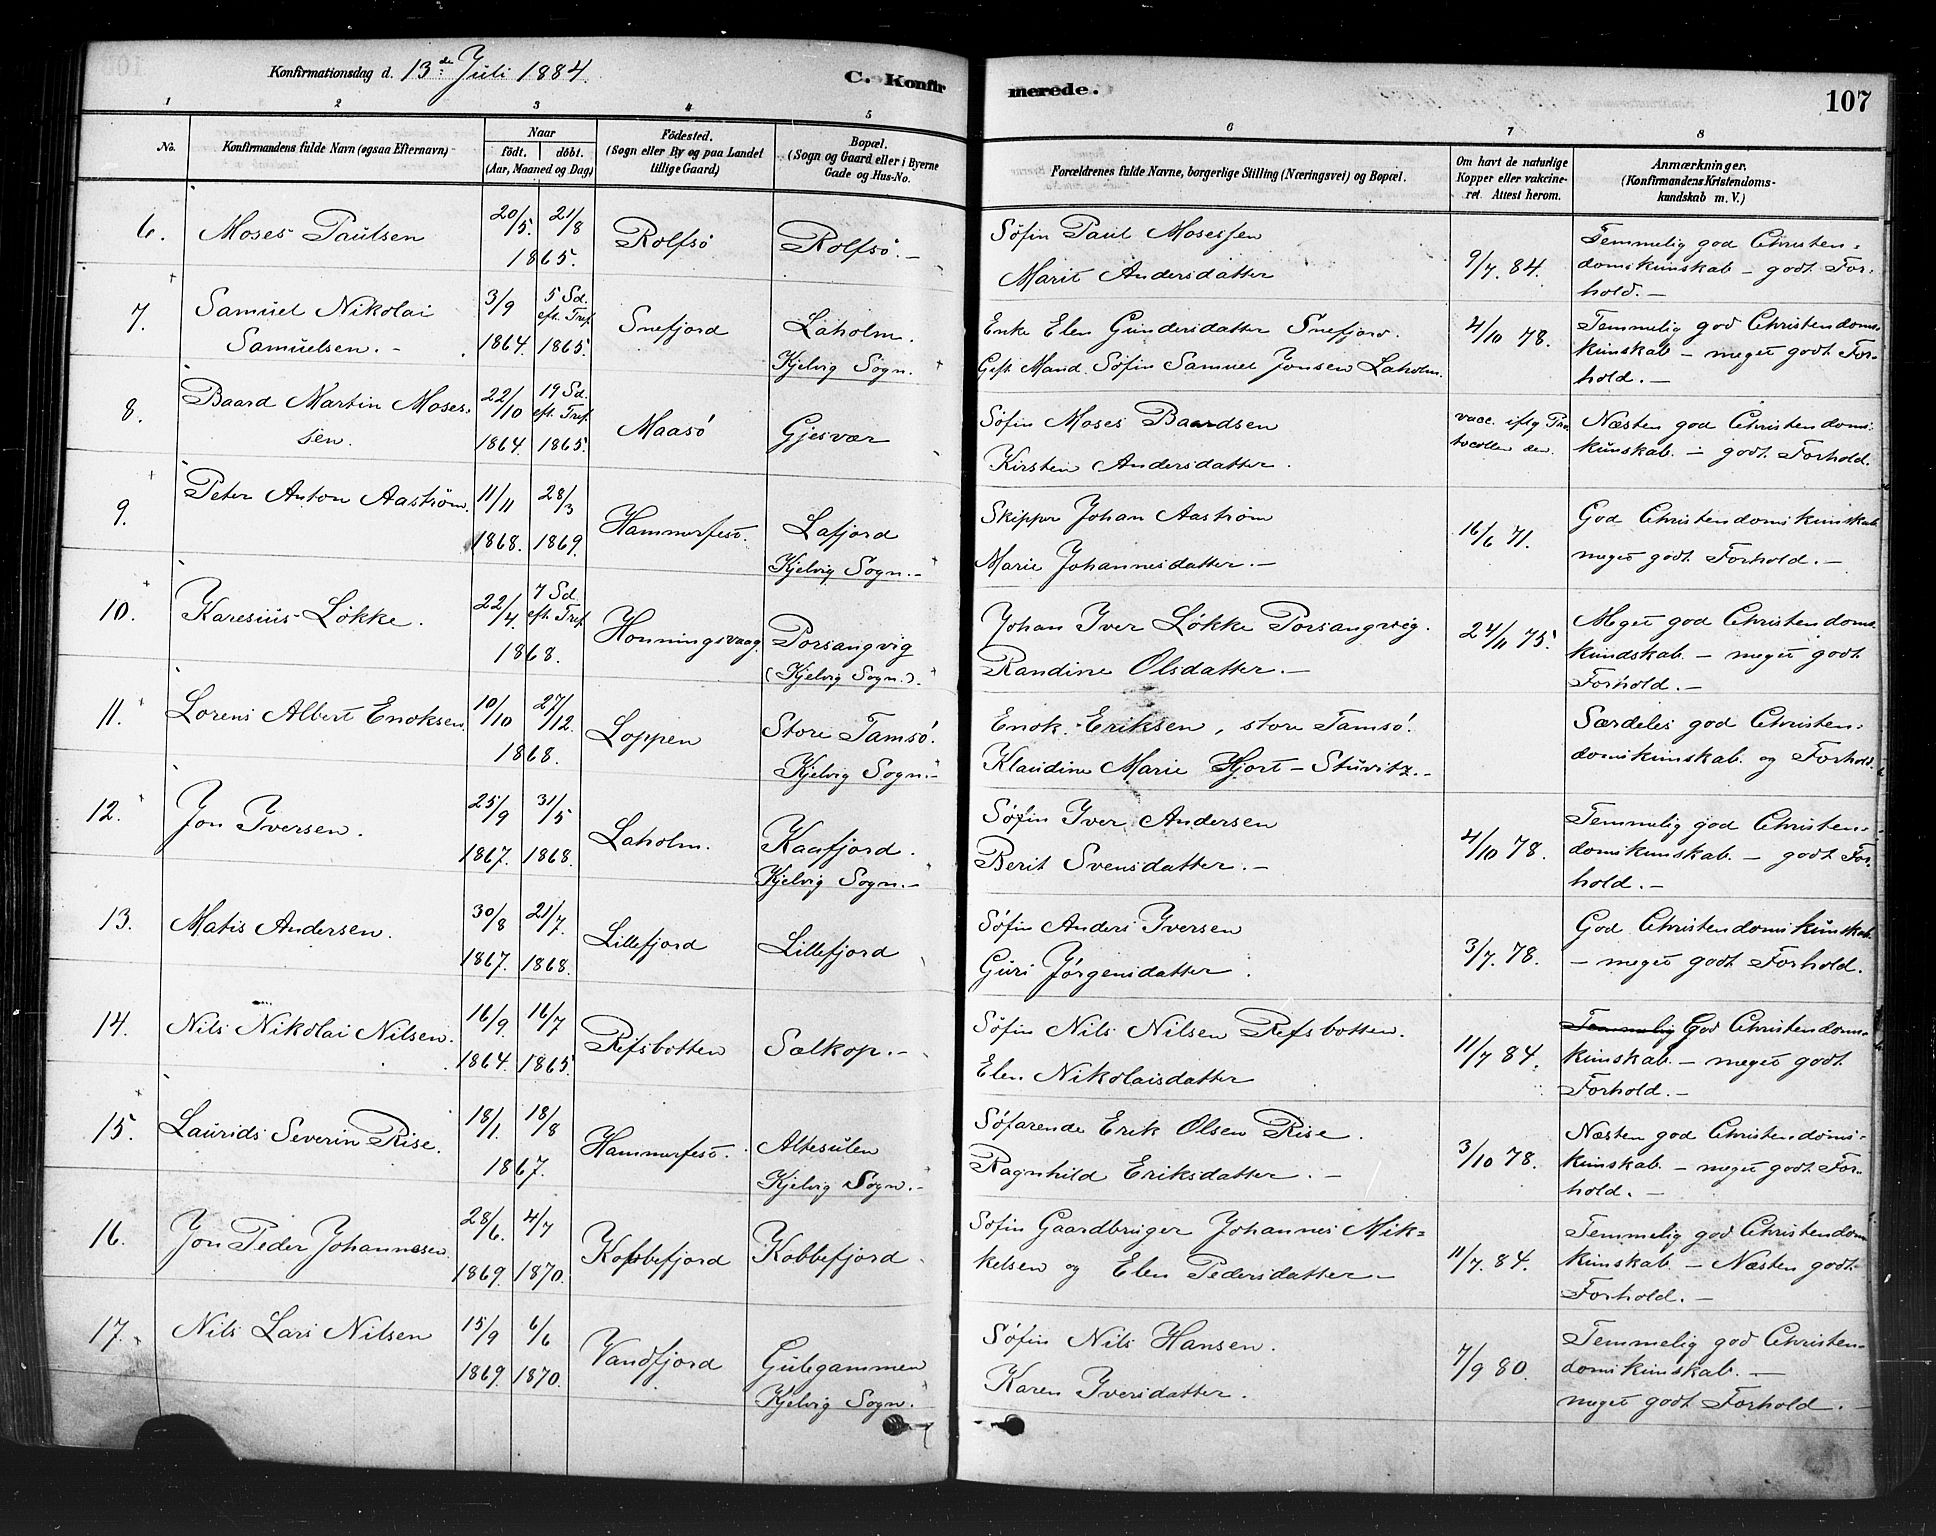 Konfirmationsdag d. 13de Juli 1884.
C. Konfirmerede.
107
1 2 3 4 5 6 7 8
No.
Konfirmandens fulde Navn (ogsaa Efternavn)
Naar
födt. döbt.
(Aar, Maaned og Dag)
Födested.
(Sogn eller By og paa Landet
tillige Gaard)
Bopæl.
(Sogn og Gaard eller i Byerne
Gade og Hus-No.
Forældrenes fulde Navne, borgerlige Stilling (Næringsvei) og Bopæl.
Om havt de naturlige
Kopper eller vakcine-
ret. Attest herom.
Anmærkninger.
(Konfirmandens Kristendoms-
kundskab m. V.)
6. Moses Paulsen 20/5. 21/8 1865. Rolfsö Rolfsö.-
Söfin Paul Mosessen
Marit Andersdatter
9/7. 84.
Temmelig god Christen-
domskunskab - godt For-
hold.-
7. Samuel Nikolai
Samuelsen.-
3/9 1864.
5 Sd. eft. Tref. 1865.
Snefjord
Laholm.
Kjelvig Sogn.
Enke Elen Gundersdatter Snefjord.
Gift Mand Söfin Samuel Jonsen Laholm.
4/10 78.
Temmelig god Christendoms-
kunskab - meget godt For-
hold.-
8. Baard Martin Moses-
sen.
22/10 1864.
19 Sd. eft. Tref. 1865.
Maasö
Gjesvær
Söfin Moses Baardsen
Kirsten Andersdatter.
vacc. iflg Pro-
tocollen
Næsten god Christendoms-
kunskab. - godt Forhold.
9. Peter Anton Aaström.
11/11 1868.
28/3 1869.
Hammerfest.
Lafjord
Kjelvig Sogn.-
Skipper Johan Aaström
Marie Johannesdatter.-
16/6 71.
God Christendomskunskab
meget godt Forhold.-
10. Karesius Lökke.
22/4. 7 Sd. eft. Tref. 1868.
Honningsvaag
Porsangvig
(Kjelvig Sogn.)
Johan Iver Lökke Porsangvig.
Randine Olsdatter.-
24/11 75.
Meget god Christendoms-
kundskab. - meget godt
Forhold.-
11. Lorens Albert Enoksen.
10/10 27/12. 1868.
Loppen
Store Tamsö.
Kjelvig Sogn.-
Enok Eriksen, store Tamsö.
Klaudine Marie Hjort-Stuvitz.-
Særdeles god Christen-
domskunskab. og Forhold.
12. Jon Iversen.
25/9 1867.
31/5 1868.
Laholm.
Kaafjord.
Kjelvig Sogn.-
Söfin Iver Andersen
Berit Svensdatter.-
4/10 78.
Temmelig god Christen-
domskunskab. - godt For-
hold.-
13. Matis Andersen.
30/8 1867.
21/7. 1868.
Lillefjord
Lillefjord
Söfin Anders Iversen
Guri Jörgensdatter.
3/7. 78.
God Christendomskunskab.
- meget godt Forhold.
14. Nils Nikolai Nilsen.
16/9 1864.
16/7 1865.
Refsbotten
Sælkop.-
Söfin Nils Nilsen Refsbotten.
Elen Nikolaisdatter
11/7 84.
Temmelig God Christendoms-
kunskab. - meget godt
Forhold.-
15. Laurids Severin Rise.
18/1. 18/8 1867.
Hammerfest.
Altesulen
Kjelvig Sogn.-
Söfarende Erik Olsen Rise.
Ragnhild Eriksdatter.-
3/10 78.
Næsten god Christendoms-
kunskab. - meget godt For-
hold.-
16. Jon Peder Johannesen.
28/6. 1869.
4/7 1870.
Kobbefjord
Kobbefjord.
Söfin Gaardbruger Johannes Mik-
kelsen og Elen Pedersdatter-
11/7. 84.
Temmelig god Christendoms
kunskab. - Næsten godt
Forhold.-
17. Nils Lars Nilsen
15/9 1869.
6/6 1870.
Vandfjord
Gulegammen
Kjelvig Sogn.
Söfin Nils Hansen.
Karen Iversdatter.
7/9 80.
Temmelig god Christen-
domskunskab.-
meget godt Forhold.-